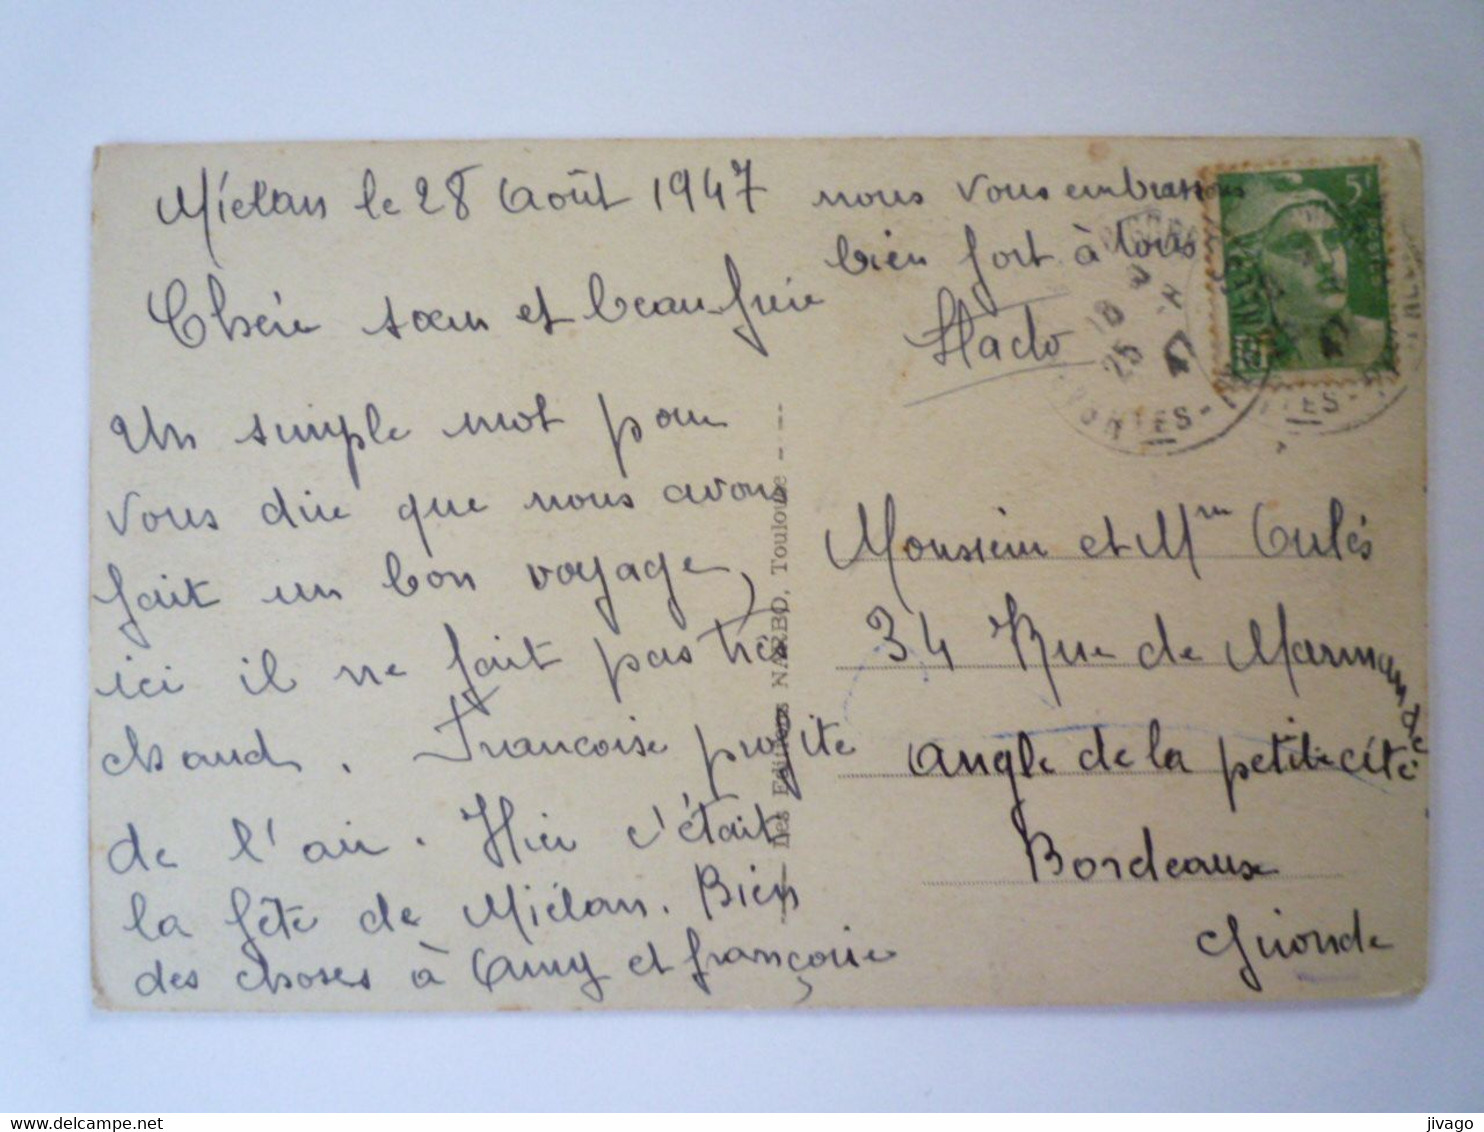 Miélan le 28 Août 1947
Chérie sœur et beau frère
Un simple mot pour
vous dire que nous avons
fait un bon voyage,
ici il ne fait pas très
chaud. Francoise profite
de l'air. Hier c'était
la fête de Miélan. Bien
des choses à Amy et françoise
nous vous embrassons
bien fort à tous
Les Editions NARBO, Toulouse
5F
Monsieur et Mme
34 Rue de Marmande
Angle de la petite cité
Bordeaux
Gironde
jivago